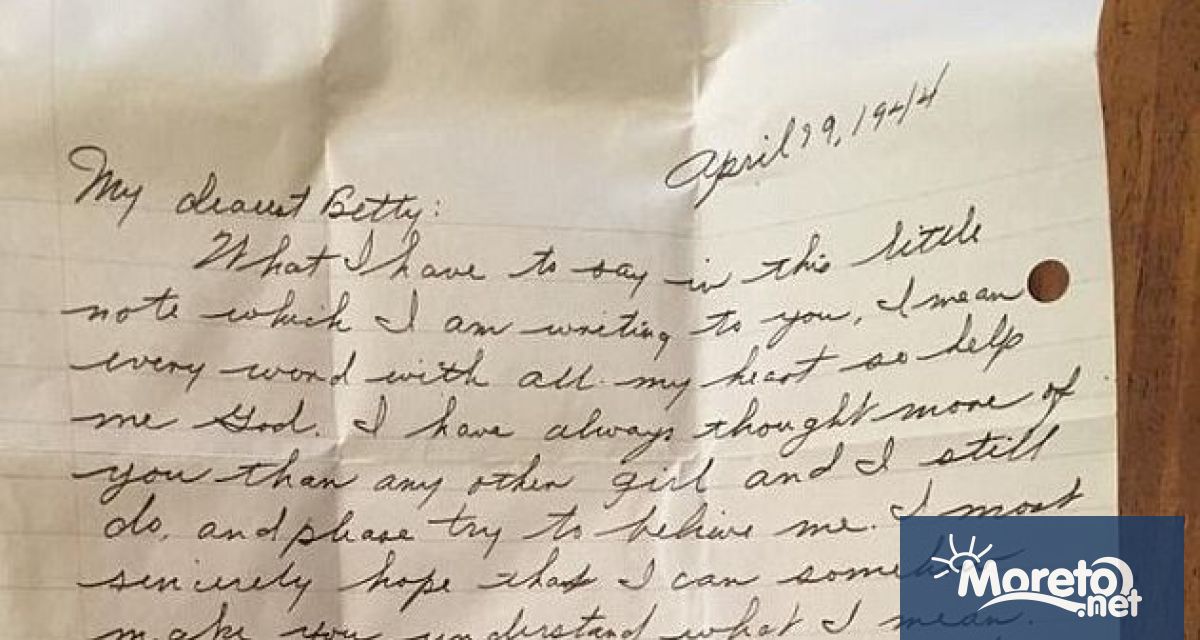 April 29, 1944
My dearest Betty:
What I have to say in this little
note which I am writing to you, I mean
every word with all my heart so help
me God. I have always thought more of
you than any other girl and I still
do, and please try to believe me. I most
sincerely hope that I can somehow
make you understand what I mean.
Moreto
.net